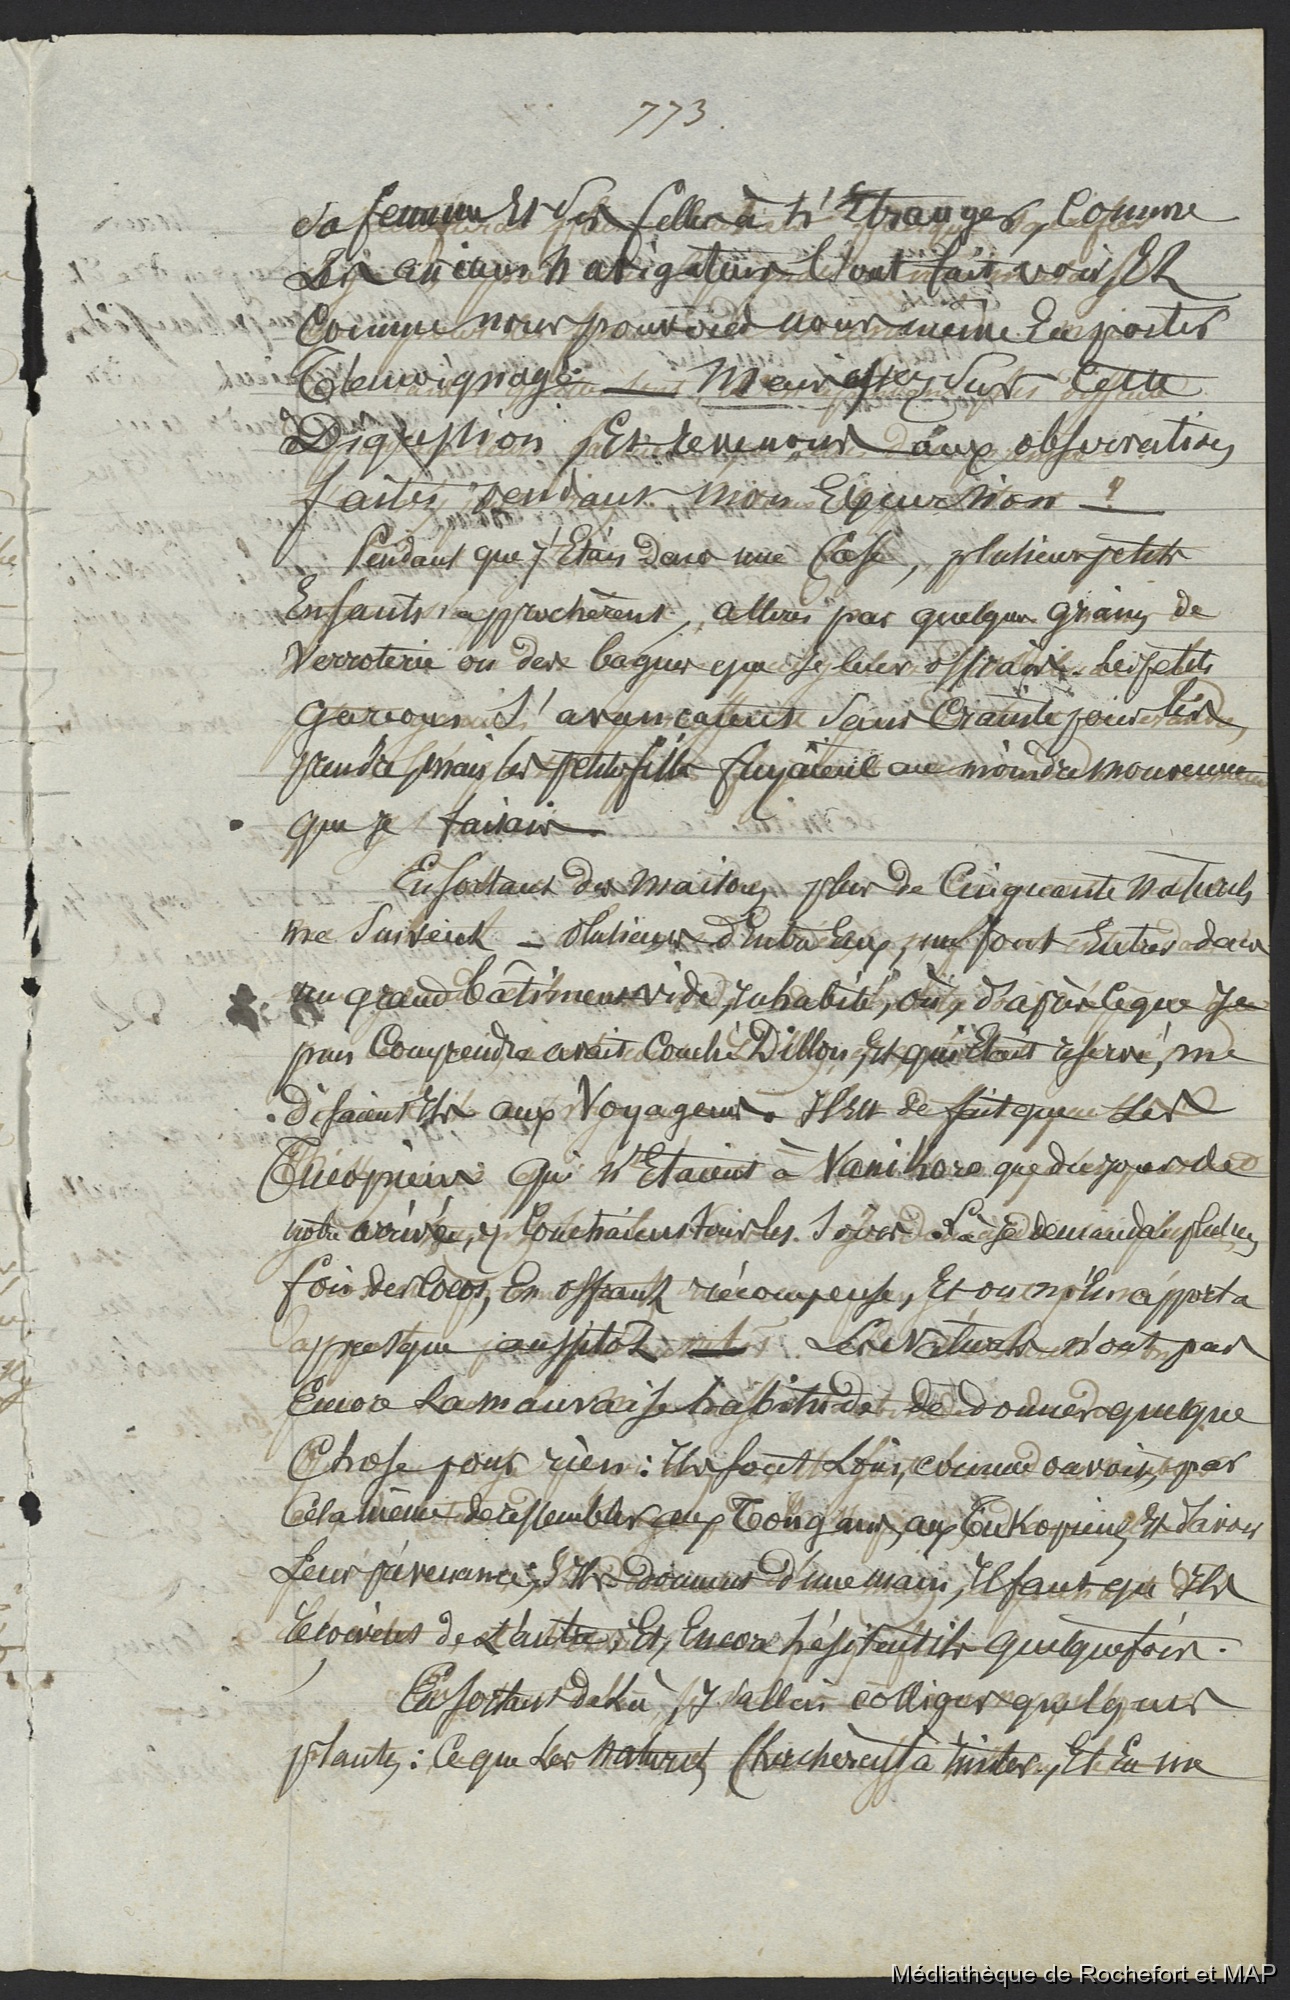 773.
sa femme Et ses filles à L'Etranger, Comme
Les anciens navigateurs l'ont fait voir, Et
Comme nous pouvons nous même En porter
Témoignage. — assez sur Cette
Digression, Et revenons aux observations
faites pendant mon Excursion —
Pendant que j'Etais dans une Case, plusieurs petits
Enfants approchèrent, attirés par quelques grains de
Verroterie ou des bagues que je leur offrais. Les petits
garçons s'avançaient sans Crainte pour les
prendre, mais les petites filles fuyaient au moindre mouvement
que je faisais.
En sortant des maisons, plus de Cinquante naturels
me suivent — Plusieurs d'Entre Eux, me font Entrer dans
un grand bâtiment vide, Inhabité, où, d'après ce que Je
pus Comprendre avait Couché Dillon, Et qui Etait réservé, me
disaient Ils aux Voyageurs. Il Est de fait que Les
Tucopiens qui n'Etaient à Vanikoro que du jour de
notre arrivée, y Couchaient tous les soirs. Là je demandai plusieurs
fois des Cocos, En offrant récompense, Et on m'En apporta
presque aussitot — Les Naturels n'ont pas
Encore La mauvaise habitude de donner quelque
Chose pour rien : Ils sont Loin, comme on voit, par
Cela même de ressembler aux Tongans, aux Tukopiens, Et d'avoir
Leur prévenance; s'Ils donnent d'une main, Il faut qu'Ils
recoivent de L'autre, Et, Encore hésitent ils quelquefois.
En sortant de Là, j'allais colliger quelques
plantes : Ce que Les naturels Cherchèrent à imiter, Et En me
Médiathèque de Rochefort et MAP